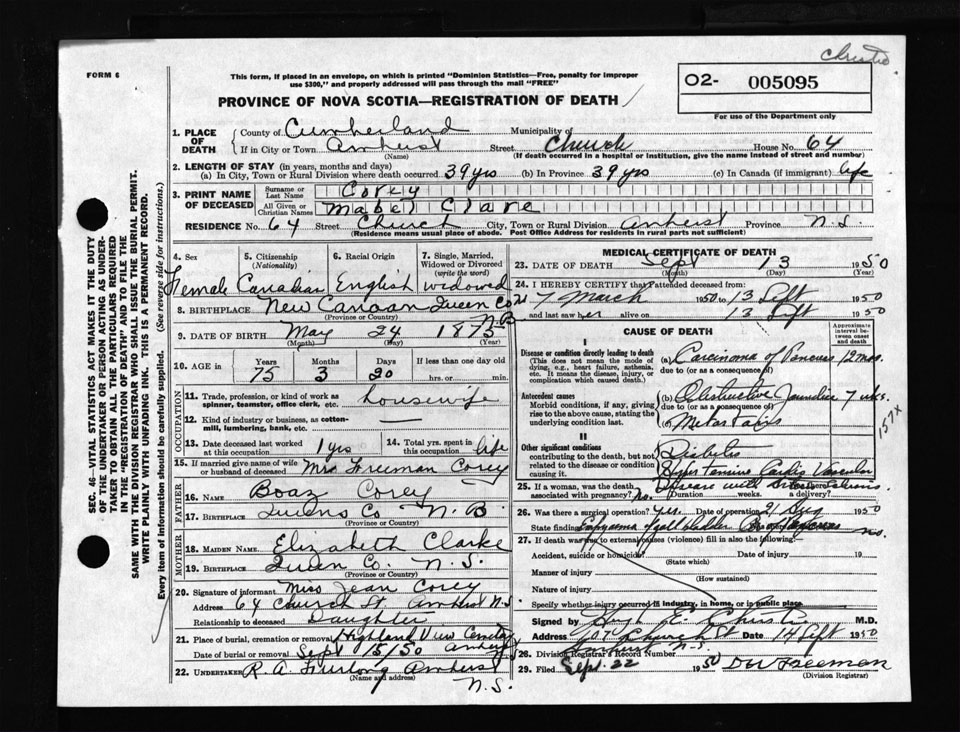 Christie
FORM 6
This form, if placed in an envelope, on which is printed "Dominion Statistics—Free, penalty for improper
use $300," and properly addressed will pass through the mail "FREE"
O2- 005095
For use of the Department only
PROVINCE OF NOVA SCOTIA—REGISTRATION OF DEATH
SEC. 46—VITAL STATISTICS ACT MAKES IT THE DUTY
OF THE UNDERTAKER OR PERSON ACTING AS UNDER-
TAKER TO OBTAIN ALL THE PARTICULARS REQUIRED
IN THE "REGISTRATION OF DEATH" AND TO FILE THE
SAME WITH THE DIVISION REGISTRAR WHO SHALL ISSUE THE BURIAL PERMIT.
WRITE PLAINLY WITH UNFADING INK. THIS IS A PERMANENT RECORD.
Every item of information should be carefully supplied. (See reverse side for instructions.)
1. PLACE OF DEATH
County of Cumberland Municipality of
If in City or Town Amherst Street Church House No. 64
(Name) (If death occurred in a hospital or institution, give the name instead of street and number)
2. LENGTH OF STAY (in years, months and days)
(a) In City, Town or Rural Division where death occurred 39 yrs (b) In Province 39 yrs (c) In Canada (if immigrant) life
3. PRINT NAME OF DECEASED
Surname or Last Name Corey
All Given or Christian Names Mabel Clare
RESIDENCE No. 64 Street Church City, Town or Rural Division Amherst Province N.S.
(Residence means usual place of abode. Post Office Address for residents in rural parts not sufficient)
4. Sex 5. Citizenship (Nationality) 6. Racial Origin 7. Single, Married, Widowed or Divorced (write the word)
Female Canadian English widowed
8. BIRTHPLACE New Canaan Queen Co N B
(Province or Country)
9. DATE OF BIRTH May 24 1875
(Month) (Day) (Year)
10. AGE in Years Months Days If less than one day old
75 3 20 hrs. or min.
OCCUPATION
11. Trade, profession, or kind of work as spinner, teamster, office clerk, etc. housewife
12. Kind of industry or business, as cotton-mill, lumbering, bank, etc. —
13. Date deceased last worked at this occupation 1 yrs 14. Total yrs. spent in this occupation life
15. If married give name of wife or husband of deceased Mrs Freeman Corey
FATHER
16. NAME Boaz Corey
17. BIRTHPLACE Queens Co N.B.
MOTHER
18. MAIDEN NAME Elizabeth Clarke
19. BIRTHPLACE Queen Co. N.S.
(Province or Country)
20. Signature of informant Miss Jean Corey
Address 64 Church St Amherst N.S.
Relationship to deceased Daughter
21. Place of burial, cremation or removal Highland View Cemetery
Date of burial or removal Sept 15/50 Amherst
22. UNDERTAKER R. A. Furlong Amherst
(Name and address) N.S.
MEDICAL CERTIFICATE OF DEATH
23. DATE OF DEATH Sept 13 1950
(Month) (Day) (Year)
24. I HEREBY CERTIFY that I attended deceased from
7 March 1950 to 13 Sept 1950
and last saw her alive on 13 Sept 1950
CAUSE OF DEATH
Approximate interval between onset and death
I
Disease or condition directly leading to death
(This does not mean the mode of dying, e.g., heart failure, asthenia, etc. It means the disease, injury, or complication which caused death.)
(a) Carcinoma of Pancreas 12 mos.
due to (or as a consequence of)
Antecedent causes
Morbid conditions, if any, giving rise to the above cause, stating the underlying condition last.
(b) Obstructive Jaundice 7 wks.
due to (or as a consequence of)
(c) Metastasis
157X
II
Other significant conditions
contributing to the death, but not related to the disease or condition causing it.
Diabetes
Hypertensive Cardio Vascular
Disease with
25. If a woman, was the death associated with pregnancy? no. Duration weeks. a delivery?
26. Was there a surgical operation? yes. Date of operation 21 Aug 1950
State findings gall bladder no.
27. If death was due to external causes (violence) fill in also the following—
Accident, suicide or homicide? Date of injury 19
(State which)
Manner of injury
(How sustained)
Nature of injury
Specify whether injury occurred in industry, in home, or in public place
Signed by Hugh E. Christie M.D.
Address 107 Church St Date 14 Sept 1950
Amherst N.S.
28. Division Registrar's Record Number
29. Filed Sept. 22 1950 Freeman
(Division Registrar)